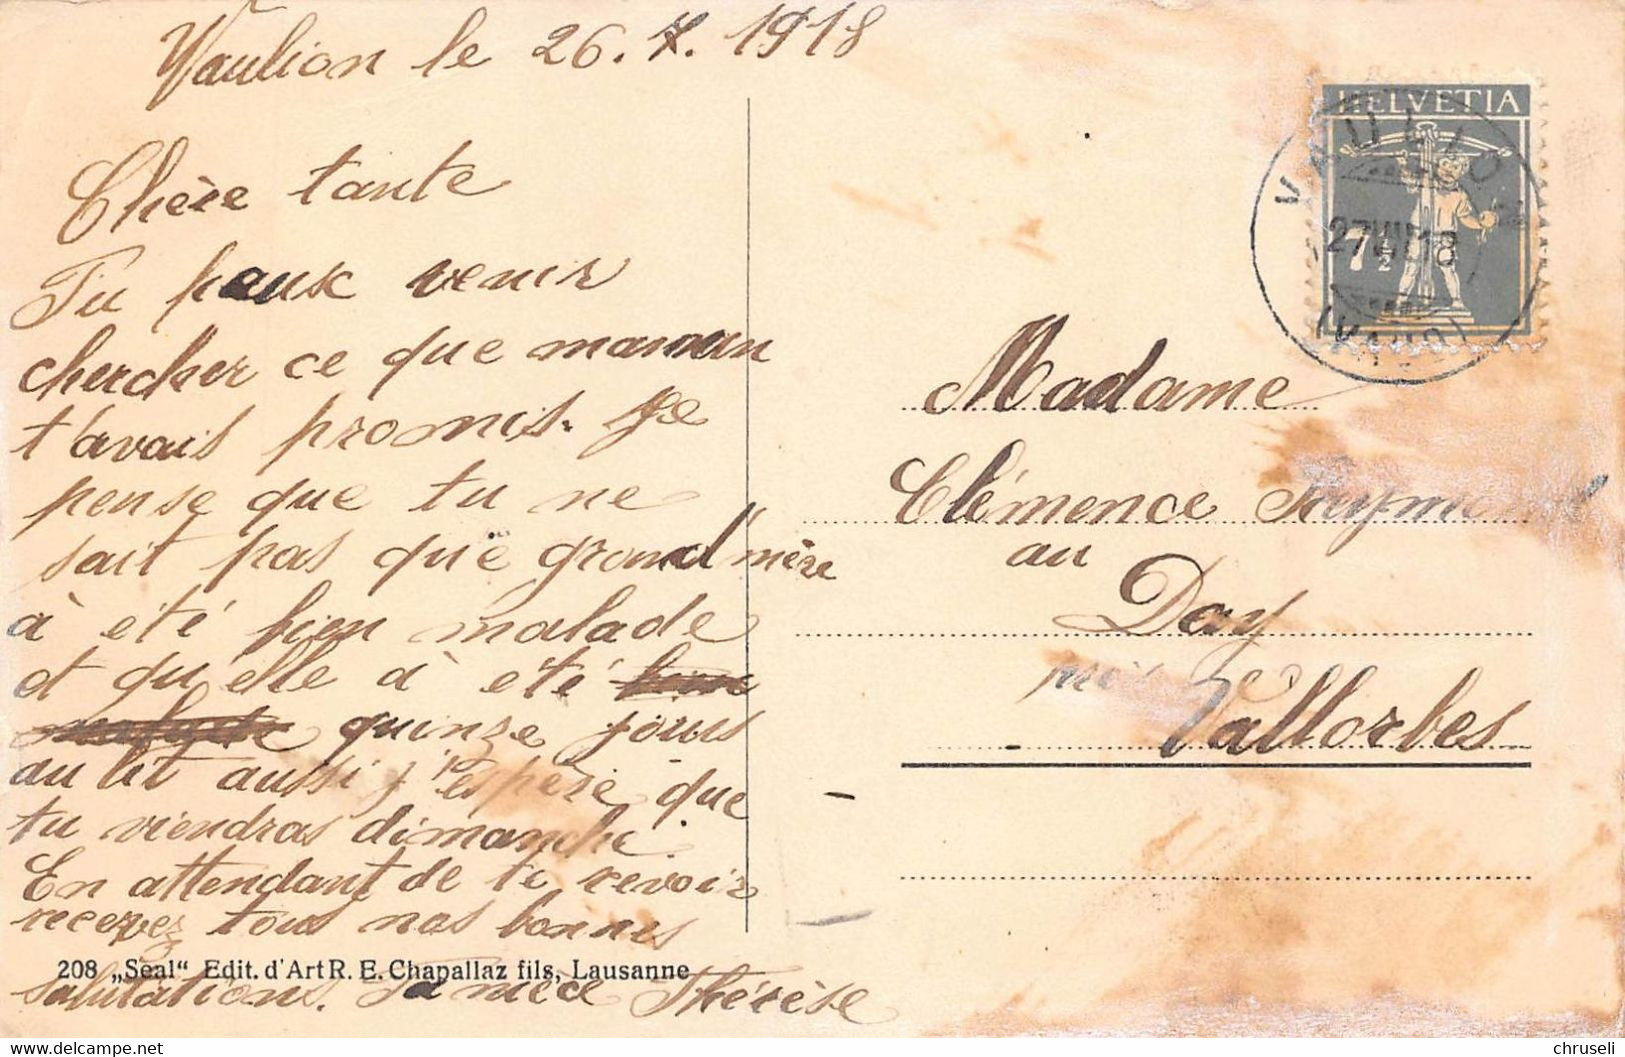 Vaulion le 26. 7. 1918
Chère tante
Tu peux venir
chercher ce que maman
t'avais promis. Je
pense que tu ne
sait pas que grand'mère
à été bien malade
et qu'elle à été
quinze jours
au lit aussi j'espère que
tu viendras dimanche.
En attendant de te revoir
recevez tous nos bonnes
salutations. Ta nièce Thérèse
208 „Seal“ Edit. d'Art R. E. Chapallaz fils, Lausanne
HELVETIA
7 1/2
VAULION
27 VII 18
(VAUD)
Madame
Clémence Raymond
au
Day
Vallorbes
delcampe.net
chruseli